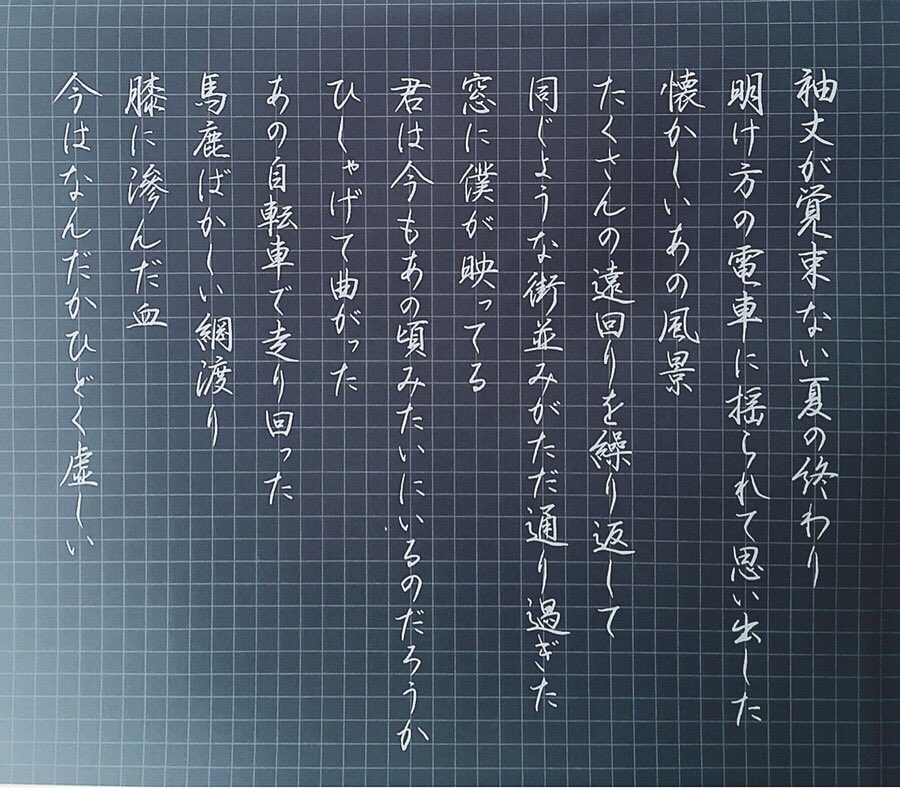 袖丈が覚束ない夏の終わり
明け方の電車に揺られて思い出した
懐かしいあの風景
たくさんの遠回りを繰り返して
同じような街並みがただ通り過ぎた
窓に僕が映ってる
君は今もあの頃みたいにいるのだろうか
ひしゃげて曲がった
あの自転車で走り回った
馬鹿ばかしい綱渡り
膝に滲んだ血
今はなんだかひどく虚しい